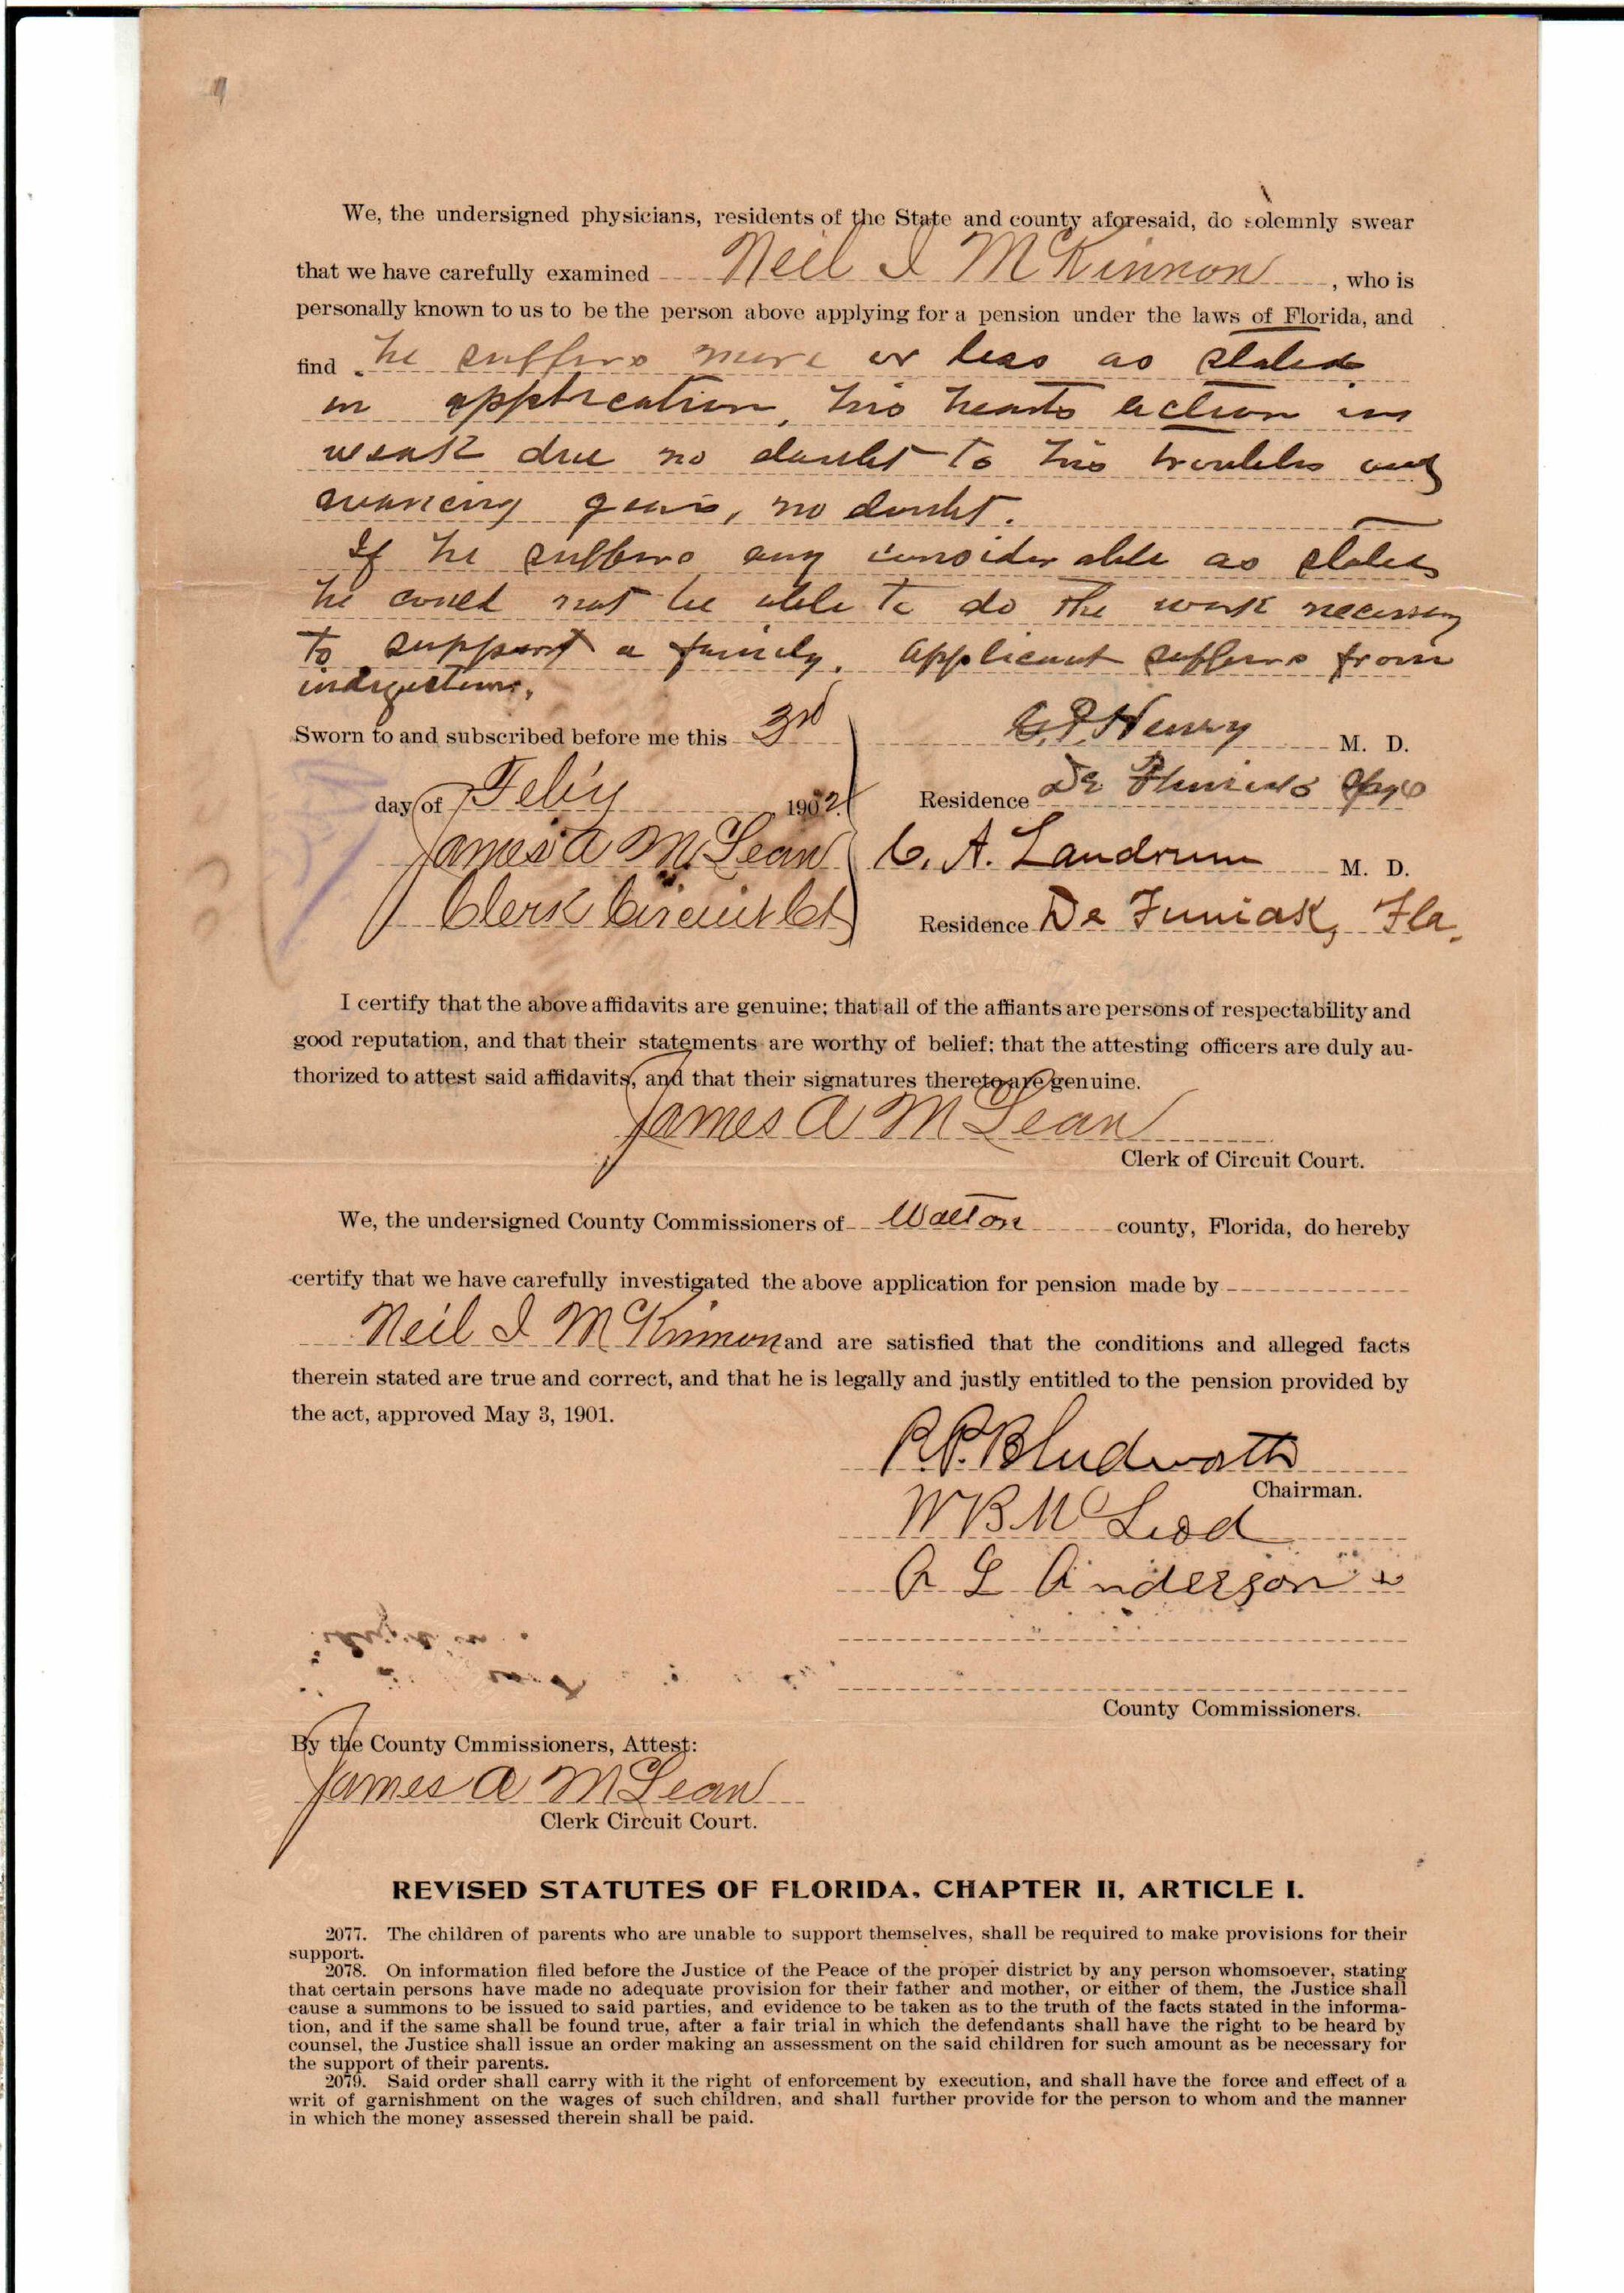 We, the undersigned physicians, residents of the State and county aforesaid, do solemnly swear
that we have carefully examined Neil I McKinnon, who is
personally known to us to be the person above applying for a pension under the laws of Florida, and
find he suffers more or less as stated
in application, his hearts action is
weak due no doubt to his troubles and
avancing years, no doubt.
If he suffers any considerable as stated
he could not be able to do the work necessary
to support a family. applicant suffers from
indigestion,
Sworn to and subscribed before me this 3rd
Henry M. D.
day of Feb'y 1902
Residence De Funiak
James A McLean
C. A. Landrum M. D.
Clerk Circuit Ct
Residence De Funiak, Fla.
I certify that the above affidavits are genuine; that all of the affiants are persons of respectability and
good reputation, and that their statements are worthy of belief; that the attesting officers are duly au-
thorized to attest said affidavits, and that their signatures thereto are genuine.
James A McLean
Clerk of Circuit Court.
We, the undersigned County Commissioners of Walton county, Florida, do hereby
certify that we have carefully investigated the above application for pension made by
Neil I McKinnon and are satisfied that the conditions and alleged facts
therein stated are true and correct, and that he is legally and justly entitled to the pension provided by
the act, approved May 3, 1901.
R.P. Bludworth
Chairman.
W B McLeod
A L Anderson
County Commissioners.
By the County Cmmissioners, Attest:
James A McLean
Clerk Circuit Court.
REVISED STATUTES OF FLORIDA, CHAPTER II, ARTICLE I.
2077. The children of parents who are unable to support themselves, shall be required to make provisions for their
support.
2078. On information filed before the Justice of the Peace of the proper district by any person whomsoever, stating
that certain persons have made no adequate provision for their father and mother, or either of them, the Justice shall
cause a summons to be issued to said parties, and evidence to be taken as to the truth of the facts stated in the informa-
tion, and if the same shall be found true, after a fair trial in which the defendants shall have the right to be heard by
counsel, the Justice shall issue an order making an assessment on the said children for such amount as be necessary for
the support of their parents.
2079. Said order shall carry with it the right of enforcement by execution, and shall have the force and effect of a
writ of garnishment on the wages of such children, and shall further provide for the person to whom and the manner
in which the money assessed therein shall be paid.